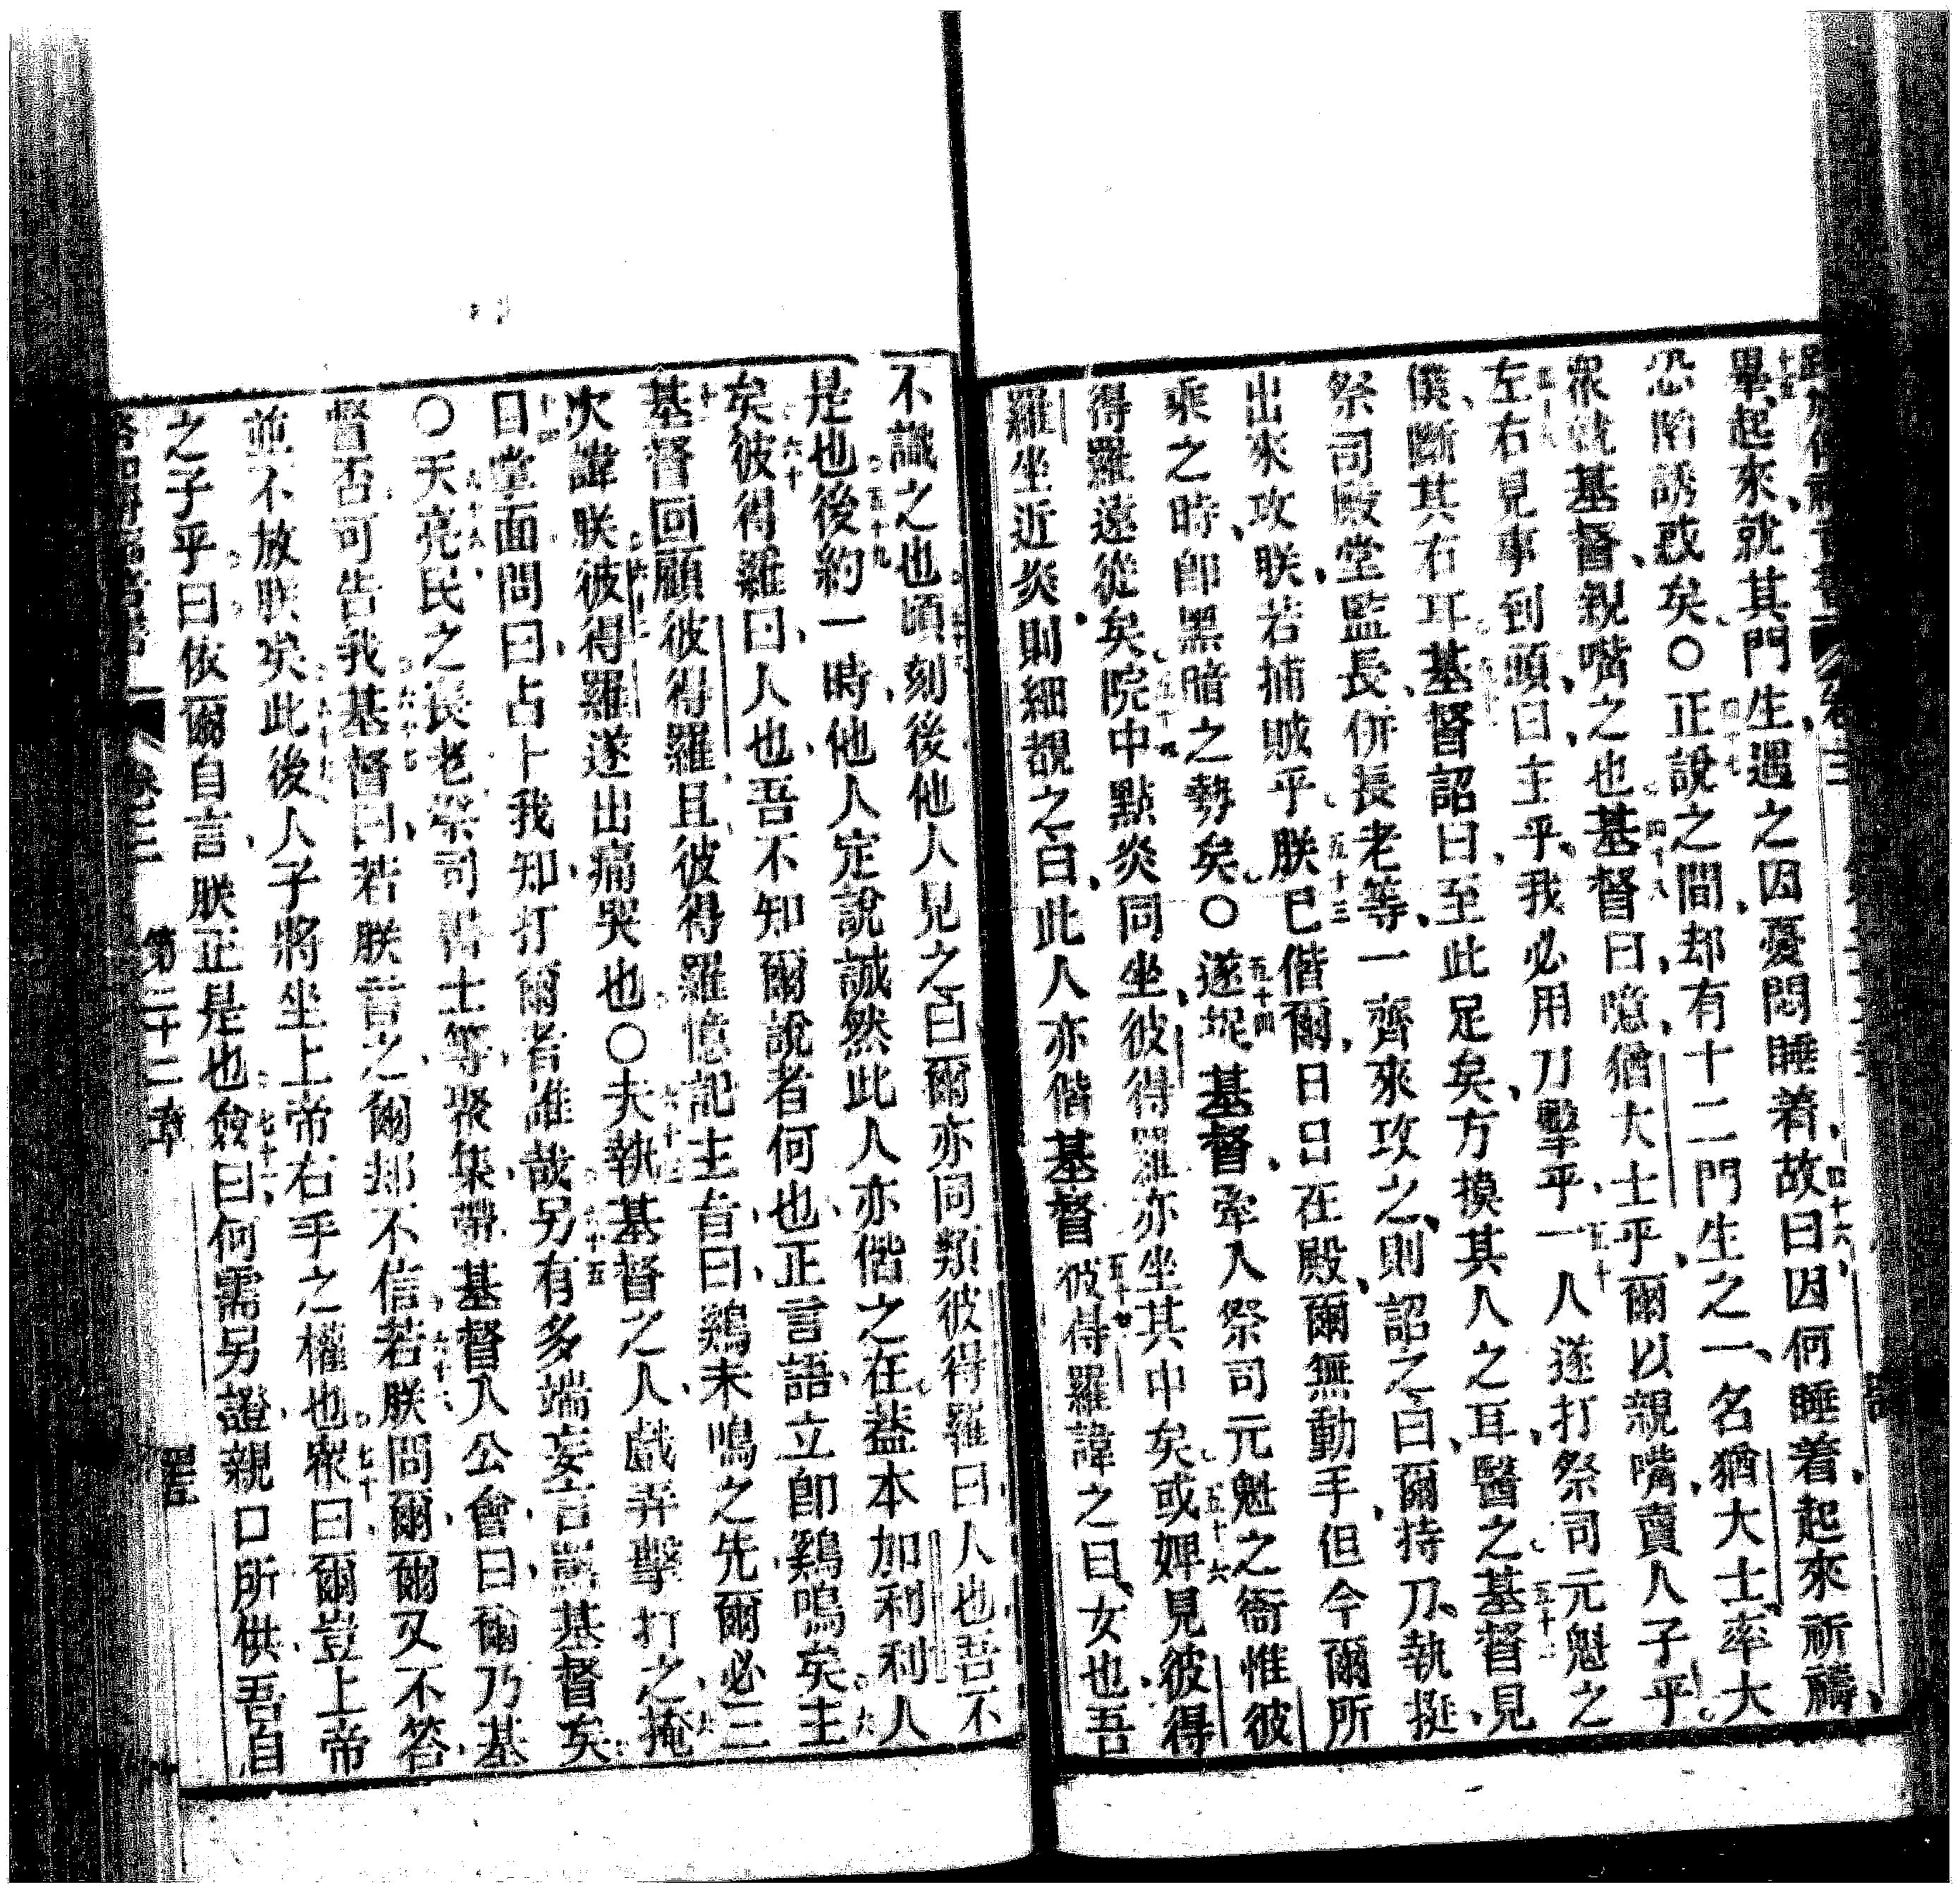 畢起來就其門生遇之因憂悶睡着故曰因何睡着起來祈禱
恐陷誘惑矣〇正說之間却有十二門生之一名猶大士率大
衆就基督親嘴之也基督曰噫猶大士乎爾以親嘴賣人子乎
左右見事到頭曰主乎我必用刀擊乎一人遂打祭司元魁之
僕斷其右耳基督詔曰至此足矣方摸其人之耳醫之基督見
祭司殿堂監長併長老等一齊來攻之則詔之曰爾持刀執挺
出來攻朕若捕賊乎朕已偕爾日日在殿爾無動手但今爾所
乘之時卽黑暗之勢矣〇遂捉基督牽入祭司元魁之衙惟彼
得羅遠從矣院中點炎同坐彼得羅亦坐其中矣或婢見彼得
羅坐近炎則細覩之曰此人亦偕基督彼得羅諱之曰女也吾
不識之也頃刻後他人見之曰爾亦同類彼得羅曰人也吾不
是也後約一時他人定說誠然此人亦偕之在葢本加利利人
矣彼得羅曰人也吾不知爾說者何也正言語立卽鷄鳴矣主
基督回顧彼得羅且彼得羅憶記主言曰鷄未鳴之先爾必三
次諱朕彼得羅遂出痛哭也〇夫執基督之人戲弄擊打之掩
目掌面問曰占卜我知打爾者誰哉另有多端妄言謗基督矣
〇天亮民之長老祭司書士等聚集帶基督入公會曰爾乃基
督否可告我基督曰若朕言之爾却不信若朕問爾爾又不答
並不放朕矣此後人子將坐上帝右手之權也衆曰爾豈上帝
之子乎曰依爾自言朕正是也僉曰何需另證親口所供吾自
第二十二章